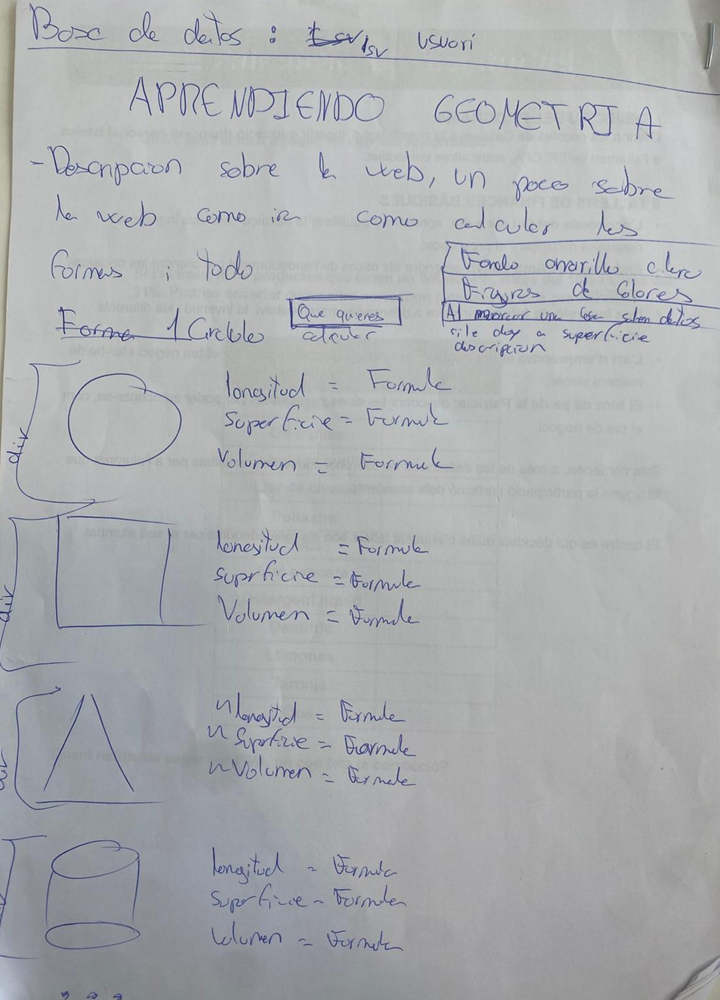 Base de datos : usuari
APRENDIENDO GEOMETRIA
- Descripcion sobre la web, un poco sobre
la web como ira como calcular las
formas i todo
Fondo amarillo claro
Figuras de Colores
Forma 1 Circulo
Que quieres
calcular
Al marcar una salen datos
si le doy a superficie
descripcion
div
longitud = Formula
superficie = Formula
Volumen = Formula
div
longitud = Formula
suprficie = Formula
Volumen = Formula
div
longitud = Formula
Superficie = Formula
Volumen = Formula
longitud = Formula
superficie = Formula
Volumen = Formula